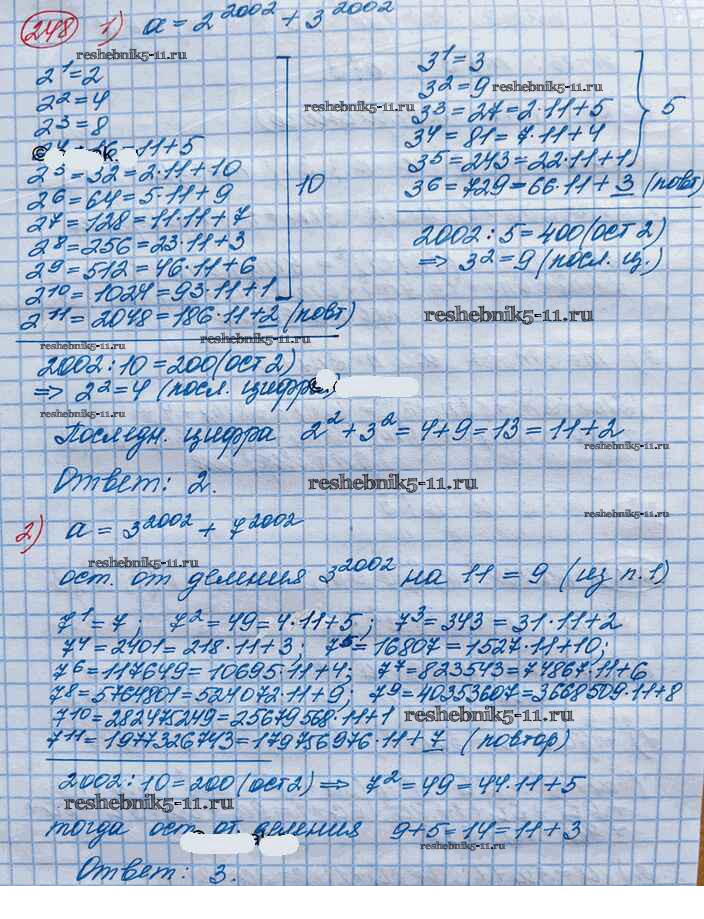 248 1) a = 2^2002 + 3^2002
reshebnik5-11.ru
2^1=2
2^2=4
2^3=8
2^4=16=11+5
2^5=32=2·11+10
2^6=64=5·11+9
2^7=128=11·11+7
2^8=256=23·11+3
2^9=512=46·11+6
2^10=1024=93·11+1
10
2^11=2048=186·11+2 (повт)
reshebnik5-11.ru
reshebnik5-11.ru
2002:10=200(ост 2)
=> 2^2=4 (посл. цифра)
reshebnik5-11.ru
3^1=3
3^2=9
reshebnik5-11.ru
reshebnik5-11.ru
3^3=27=2·11+5
3^4=81=7·11+4
3^5=243=22·11+1
5
3^6=729=66·11+3 (повт)
2002:5=400(ост 2)
=> 3^2=9 (посл. ц.)
reshebnik5-11.ru
Последн. цифра 2^2+3^2=4+9=13=11+2
reshebnik5-11.ru
Ответ: 2.
reshebnik5-11.ru
reshebnik5-11.ru
2) a = 3^2002 + 7^2002
reshebnik5-11.ru
ост. от деления 3^2002 на 11 = 9 (из п.1)
7^1=7; 7^2=49=4·11+5; 7^3=343=31·11+2
7^4=2401=218·11+3; 7^5=16807=1527·11+10;
7^6=117649=10695·11+4; 7^7=823543=74867·11+6
7^8=5764801=524072·11+9; 7^9=40353607=3668509·11+8
7^10=282475249=25679568·11+1
reshebnik5-11.ru
7^11=1977326743=179756976·11+7 (повтор)
2002:10=200(ост 2) => 7^2=49=44·11+5
reshebnik5-11.ru
тогда ост. от. деления 9+5=14=11+3
reshebnik5-11.ru
Ответ: 3.